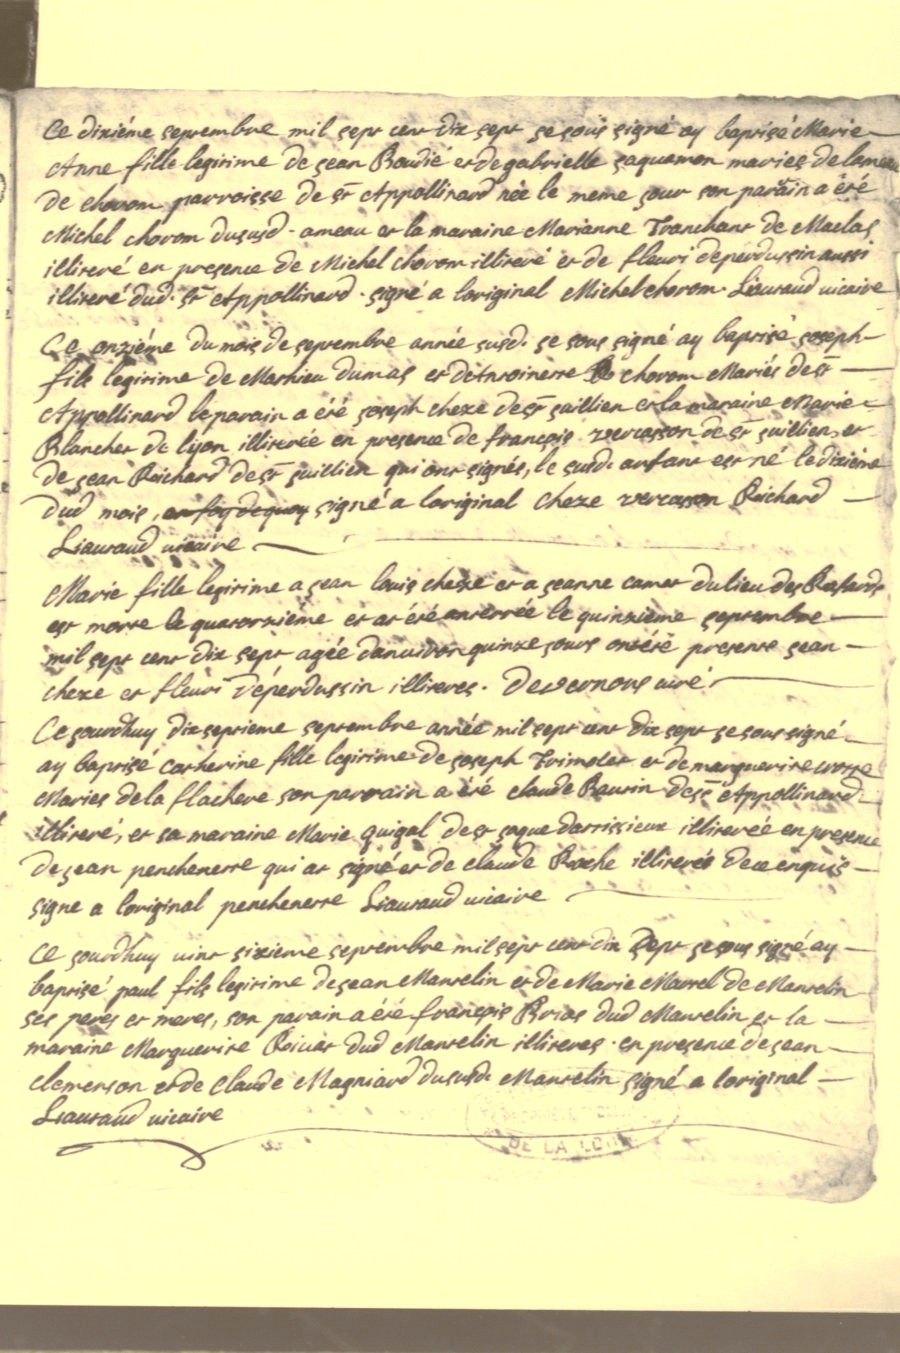 Ce dixiéme septembre mil sept cent dix sept je sous signé ay baptisé Marie
Anne fille legitime de jean Boudié et de gabrielle jaquemon mariés de lameau
de chorom parroisse de st Appollinard née le meme jour son parrain a été
Michel chorom dususd. ameau et la maraine Marianne Tranchant de Maclas
illiteré en presence de Michel chorom illiteré et de fleuri deperdussin aussi
illiteré dud. st Appollinard. signé a loriginal Michel chorom. Liauraud vicaire
Ce onziéme du mois de septembre année susd. je sous signé ay baptisé joseph
fils legitime de Mathieu dumas et dantoinette chorom Mariés de st
Appollinard le parain a été joseph cheze de st jullien et la maraine Marie
Blanchet de lyon illiterée en presence de françois vercasson de st jullien, et
de jean Richard de st jullien qui ont signés, le susd. anfant est né le dixiéme
dud mois, en foy de quoy signé a loriginal Cheze vercasson Richard
Liauraud vicaire
Marie fille legitime a jean louis cheze et a jeanne camet du lieu des
est morte le quatorziéme et at été anterrée le quinziéme septembre
mil sept cent dix sept agée danviron quinze jours ont été presents jean
cheze et fleuri dépérdussin illiteres. Devernous curé
Ce jourdhuy dix septieme septembre année mil sept cent dix sept je sous signé
ay baptisé Catherine fille legitime de joseph Trimolet et de marguerite
Mariés de la flachere son parrain a été claude Baurin de st Appollinard
illiteré, et sa maraine Marie quigal de st jaque darrissieux illiterée en presence
de jean penchenerre qui at signé et de claude Roche illiterés de ce enquis
signe a loriginal penchenerre Liauraud vicaire
Ce jourdhuy vint sixieme septembre mil sept cent dix sept je sous signé ay
baptisé paul fils legitime de jean Mantelin et de Marie Marrel de Mantelin
ses peres et meres, son parain a été françois Brias dud Mantelin et la
maraine Marguerite dud Mantelin illiteres. en presence de jean
clemenson et de Claude Magniard dususd. Mantelin signé a loriginal
Liauraud vicaire
DE LA LOIRE